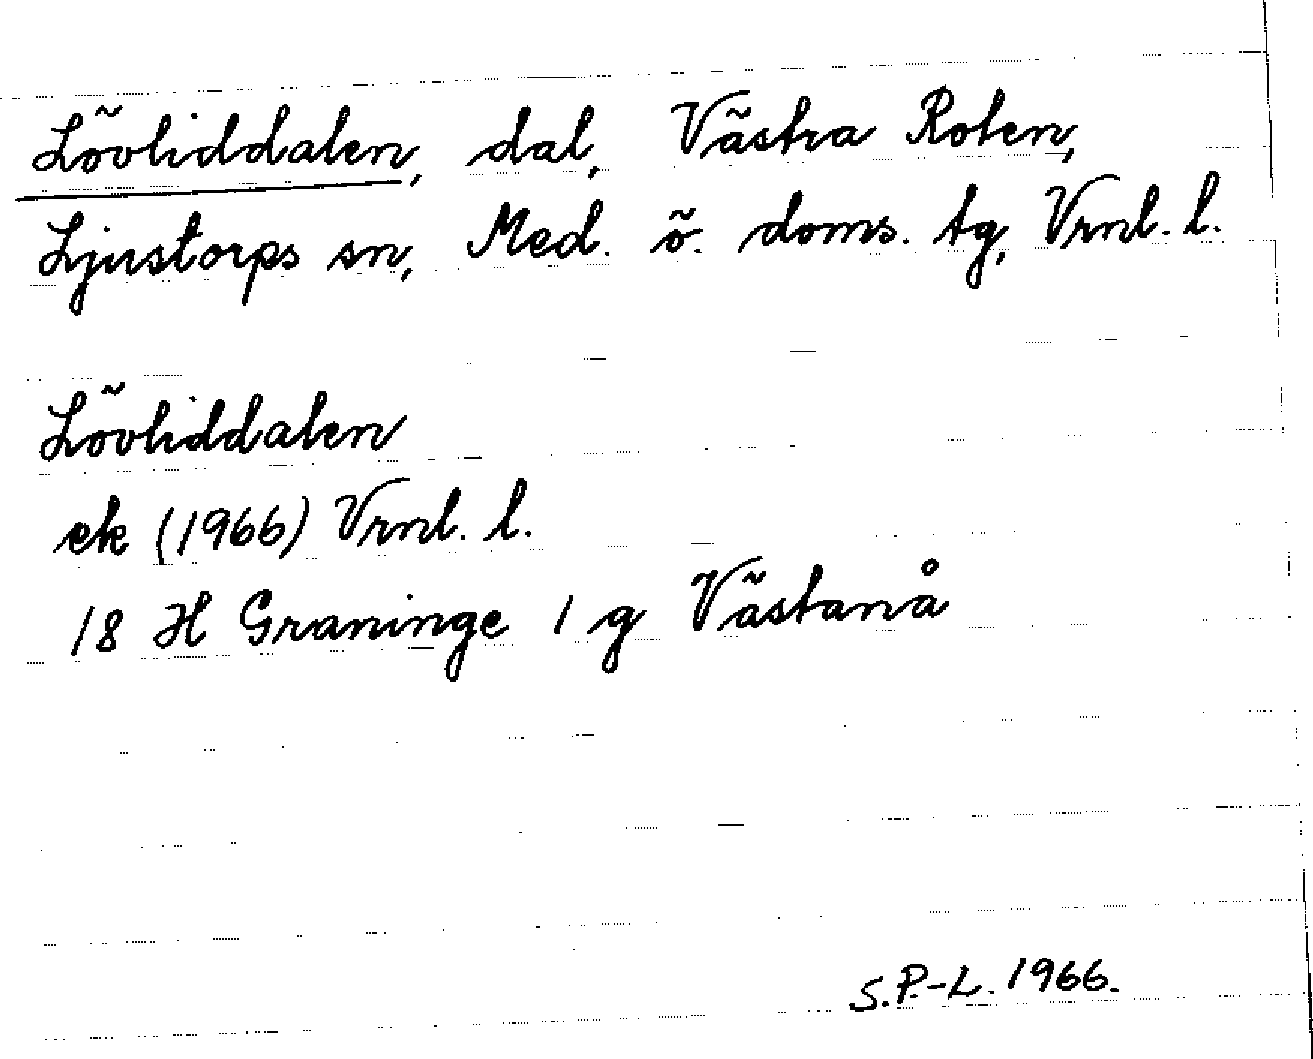 Lövliddalen, dal, Västra Roten,
Ljustorps sn, Med. ö. doms. tg, Vrnl. l.
Lövliddalen
ek (1966) Vrnl. l.
18 H Graninge 1 g Västanå
S.P.-L. 1966.